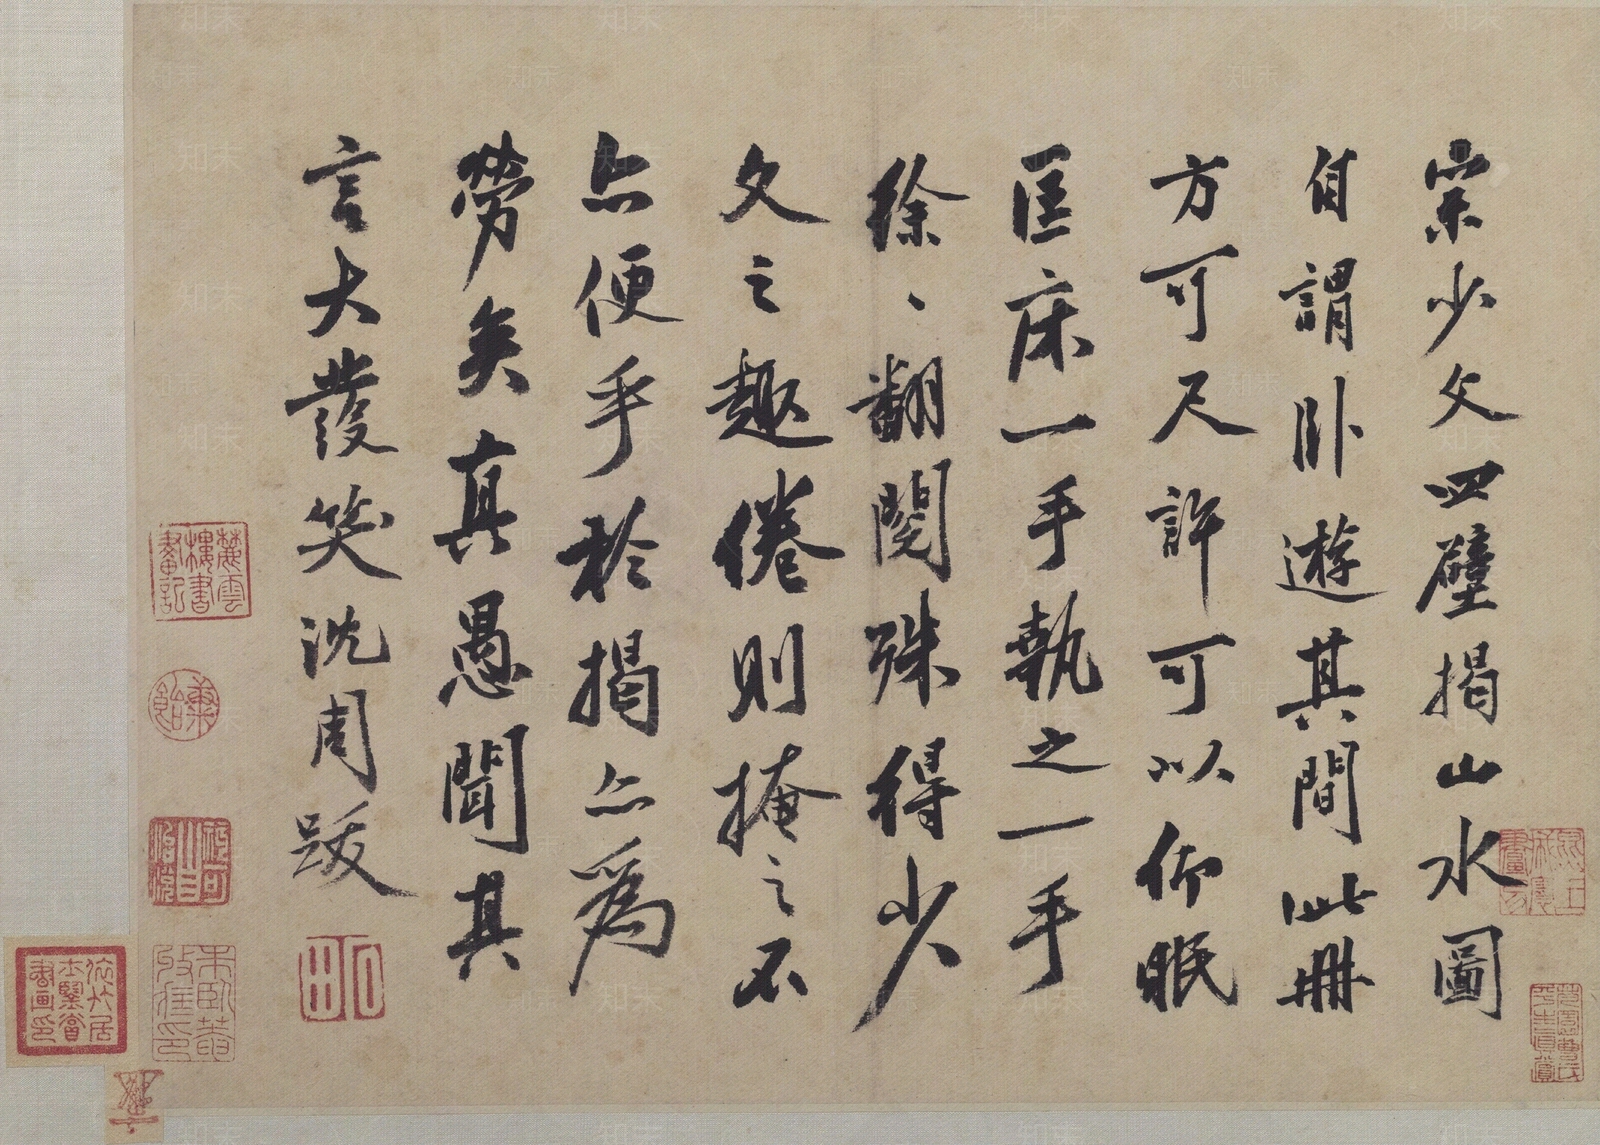 宗少文四壁揭山水圖
自謂卧遊其間此冊
方可尺許可以仰眠
匡床一手執之一手
徐、翻閱殊得少
文之趣倦則掩之不
亦便乎於揭亦為
勞矣真愚聞其
言大發笑沈周跋
石田
麓雲樓書畫記
秉貽
知末